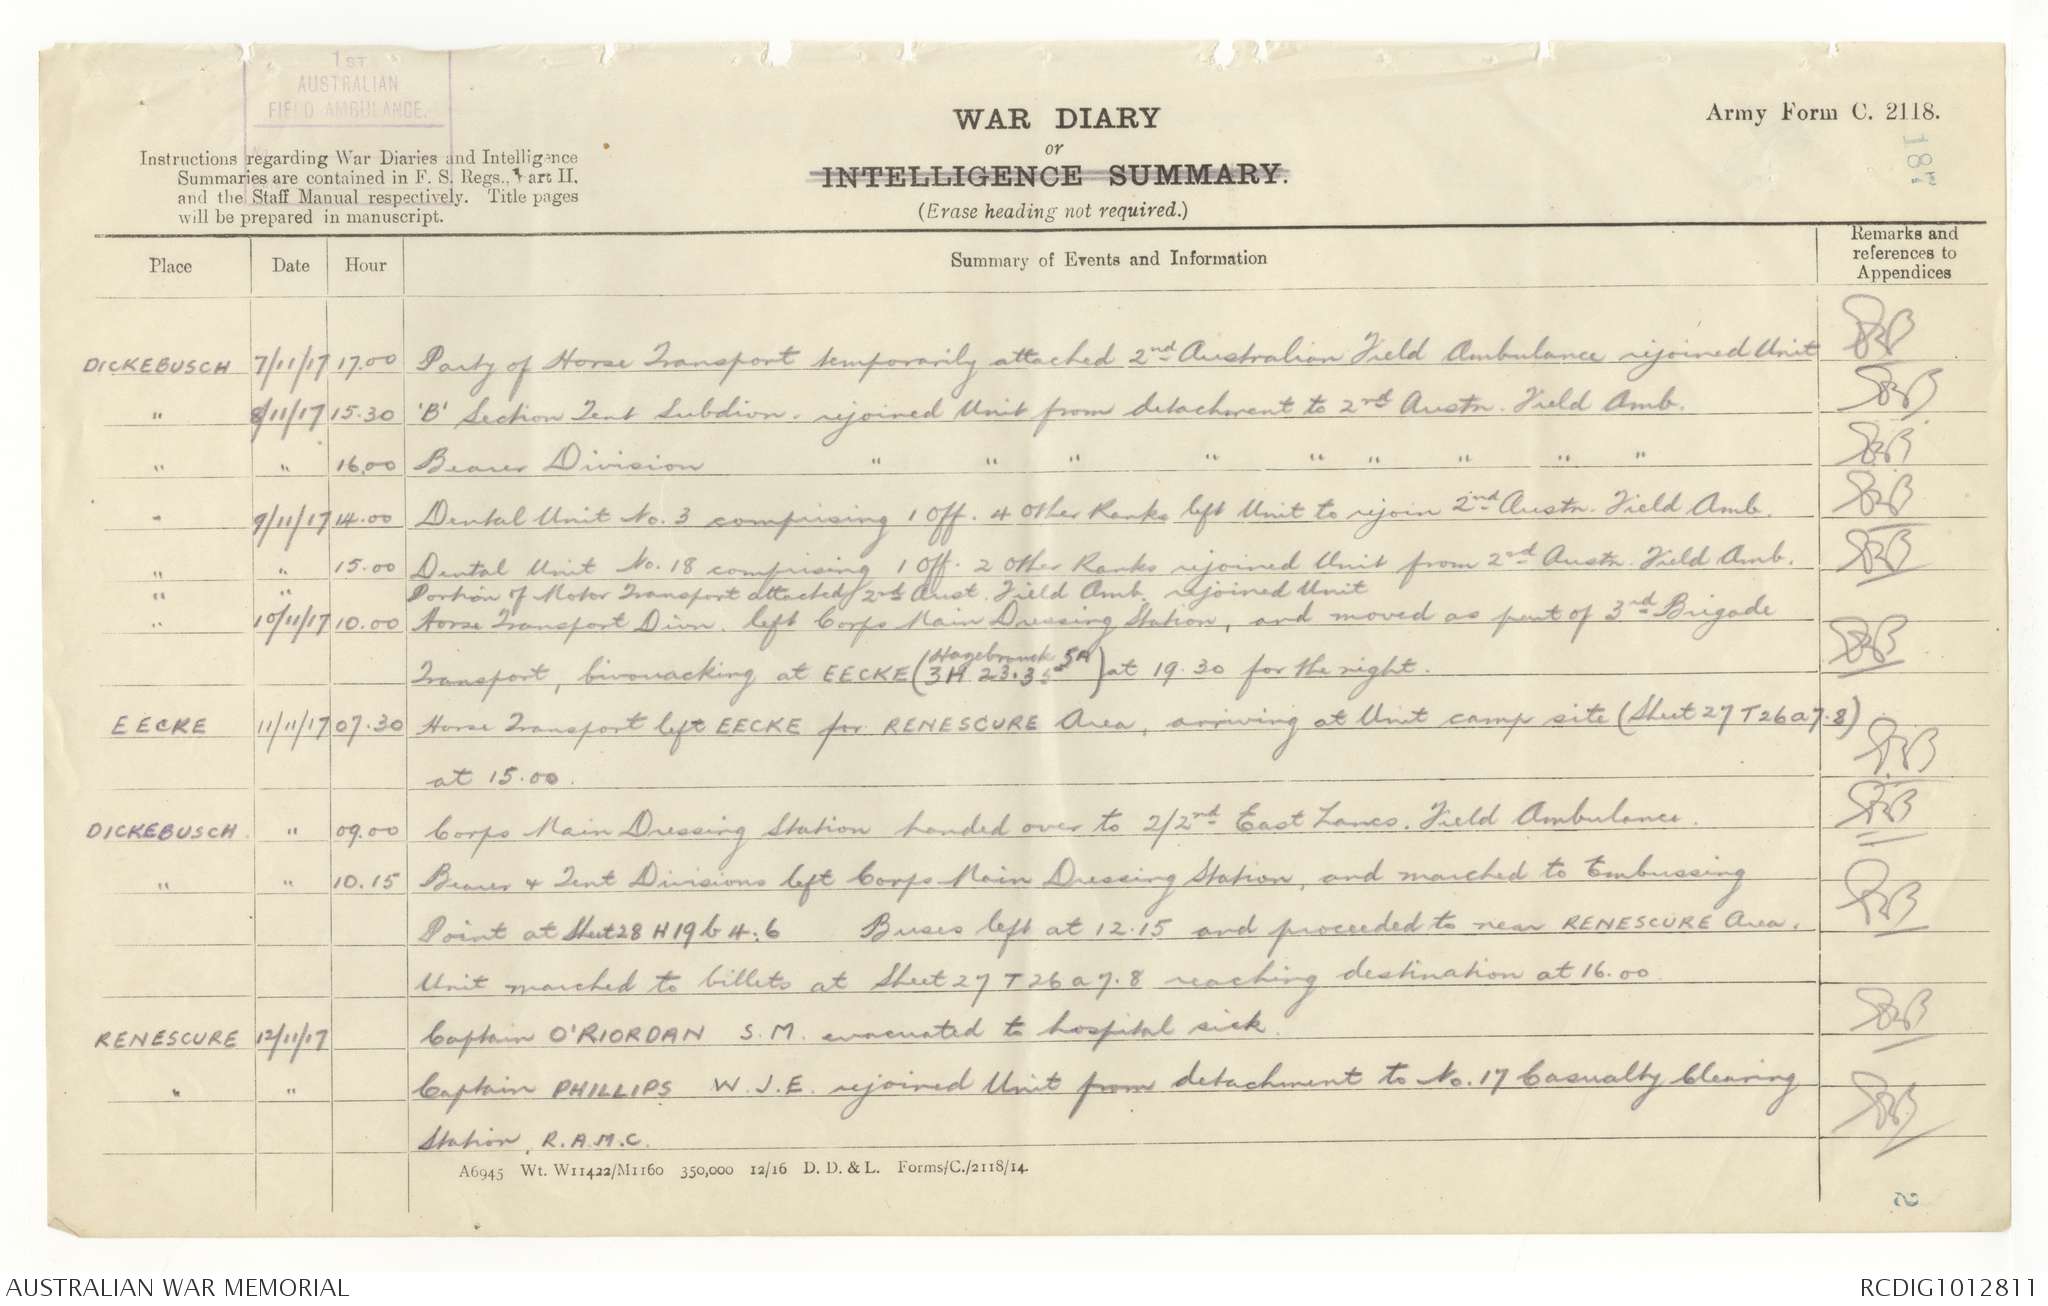 1ST
AUSTRALIAN
FIELD AMBULANCE.
WAR DIARY
or
INTELLIGENCE SUMMARY.
(Erase heading not required.)
Army Form C. 2118.
Instructions regarding War Diaries and Intelligence
Summaries are contained in F. S. Regs., Part II.
and the Staff Manual respectively. Title pages
will be prepared in manuscript.
Place Date Hour Summary of Events and Information Remarks and references to Appendices
DICKEBUSCH 7/11/17 17.00 Party of Horse Transport temporarily attached 2nd Australian Field Ambulance rejoined Unit
" 8/11/17 15.30 'B' Section Tent Subdivn. rejoined Unit from detachment to 2nd Austn. Field Amb.
" " 16.00 Bearer Division " " " " " " " " "
" 9/11/17 14.00 Dental Unit No. 3 comprising 1 Off. 4 Other Ranks left Unit to rejoin 2nd Austn. Field Amb.
" " 15.00 Dental Unit No. 18 comprising 1 Off. 2 Other Ranks rejoined Unit from 2nd Austn. Field Amb.
" " Portion of Motor Transport attached 2nd Aust. Field Amb. rejoined Unit
" 10/11/17 10.00 Horse Transport Divn. left Corps Main Dressing Station, and moved as part of 3rd Brigade
Transport, bivouacking at EECKE (Hazebrouck 5A 3H 23.35) at 19.30 for the night.
EECKE 11/11/17 07.30 Horse Transport left EECKE for RENESCURE Area, arriving at Unit camp site (Sheet 27 T26a7.8)
at 15.00.
DICKEBUSCH. " 09.00 Corps Main Dressing Station handed over to 2/2nd East Lancs. Field Ambulance.
" " 10.15 Bearer & Tent Divisions left Corps Main Dressing Station, and marched to Embussing
Point at Sheet 28 H19b 4.6 Buses left at 12.15 and proceeded to near RENESCURE Area.
Unit marched to billets at Sheet 27 T26a7.8 reaching destination at 16.00
RENESCURE 12/11/17 Captain O'RIORDAN S.M. evacuated to hospital sick.
" " Captain PHILLIPS W.J.E. rejoined Unit from detachment to No. 17 Casualty Clearing
Station, R.A.M.C.
A6945 Wt. W11422/M1160 350,000 12/16 D. D. & L. Forms/C./2118/14.
AUSTRALIAN WAR MEMORIAL
RCDIG1012811